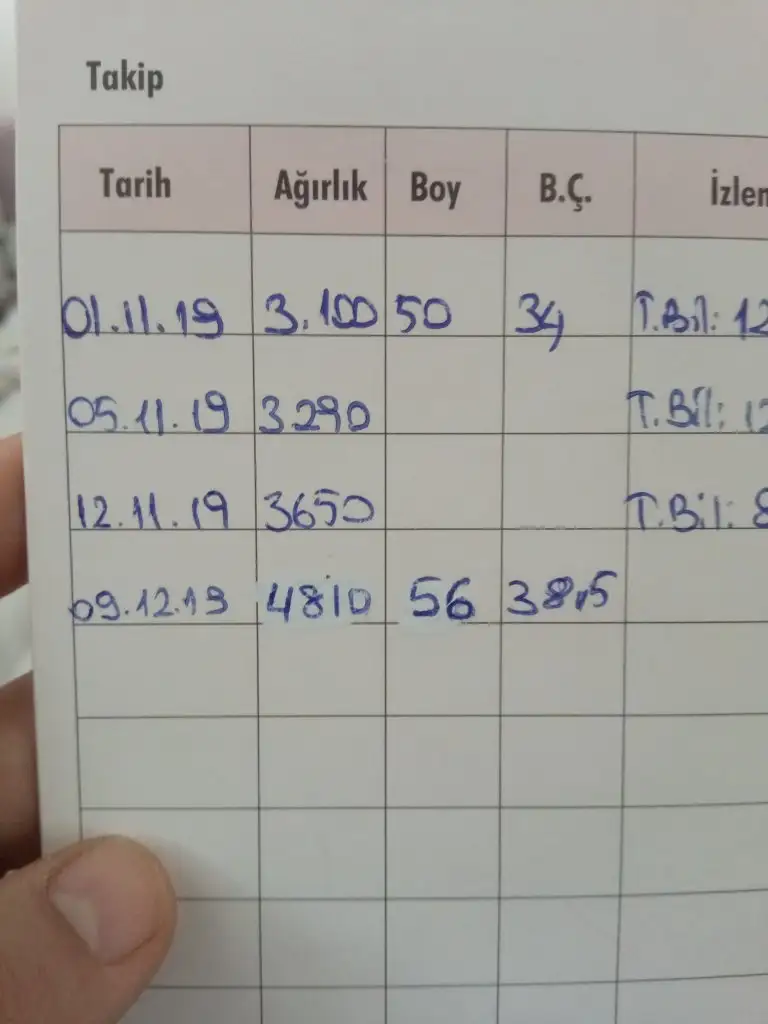 Takip
Tarih Ağırlık Boy B.Ç. İzlen
01.11.19 3.100 50 34 T.Bil: 12
05.11.19 3290 T.Bil: 12
12.11.19 3650 T.Bil: 8
09.12.19 4810 56 38,5